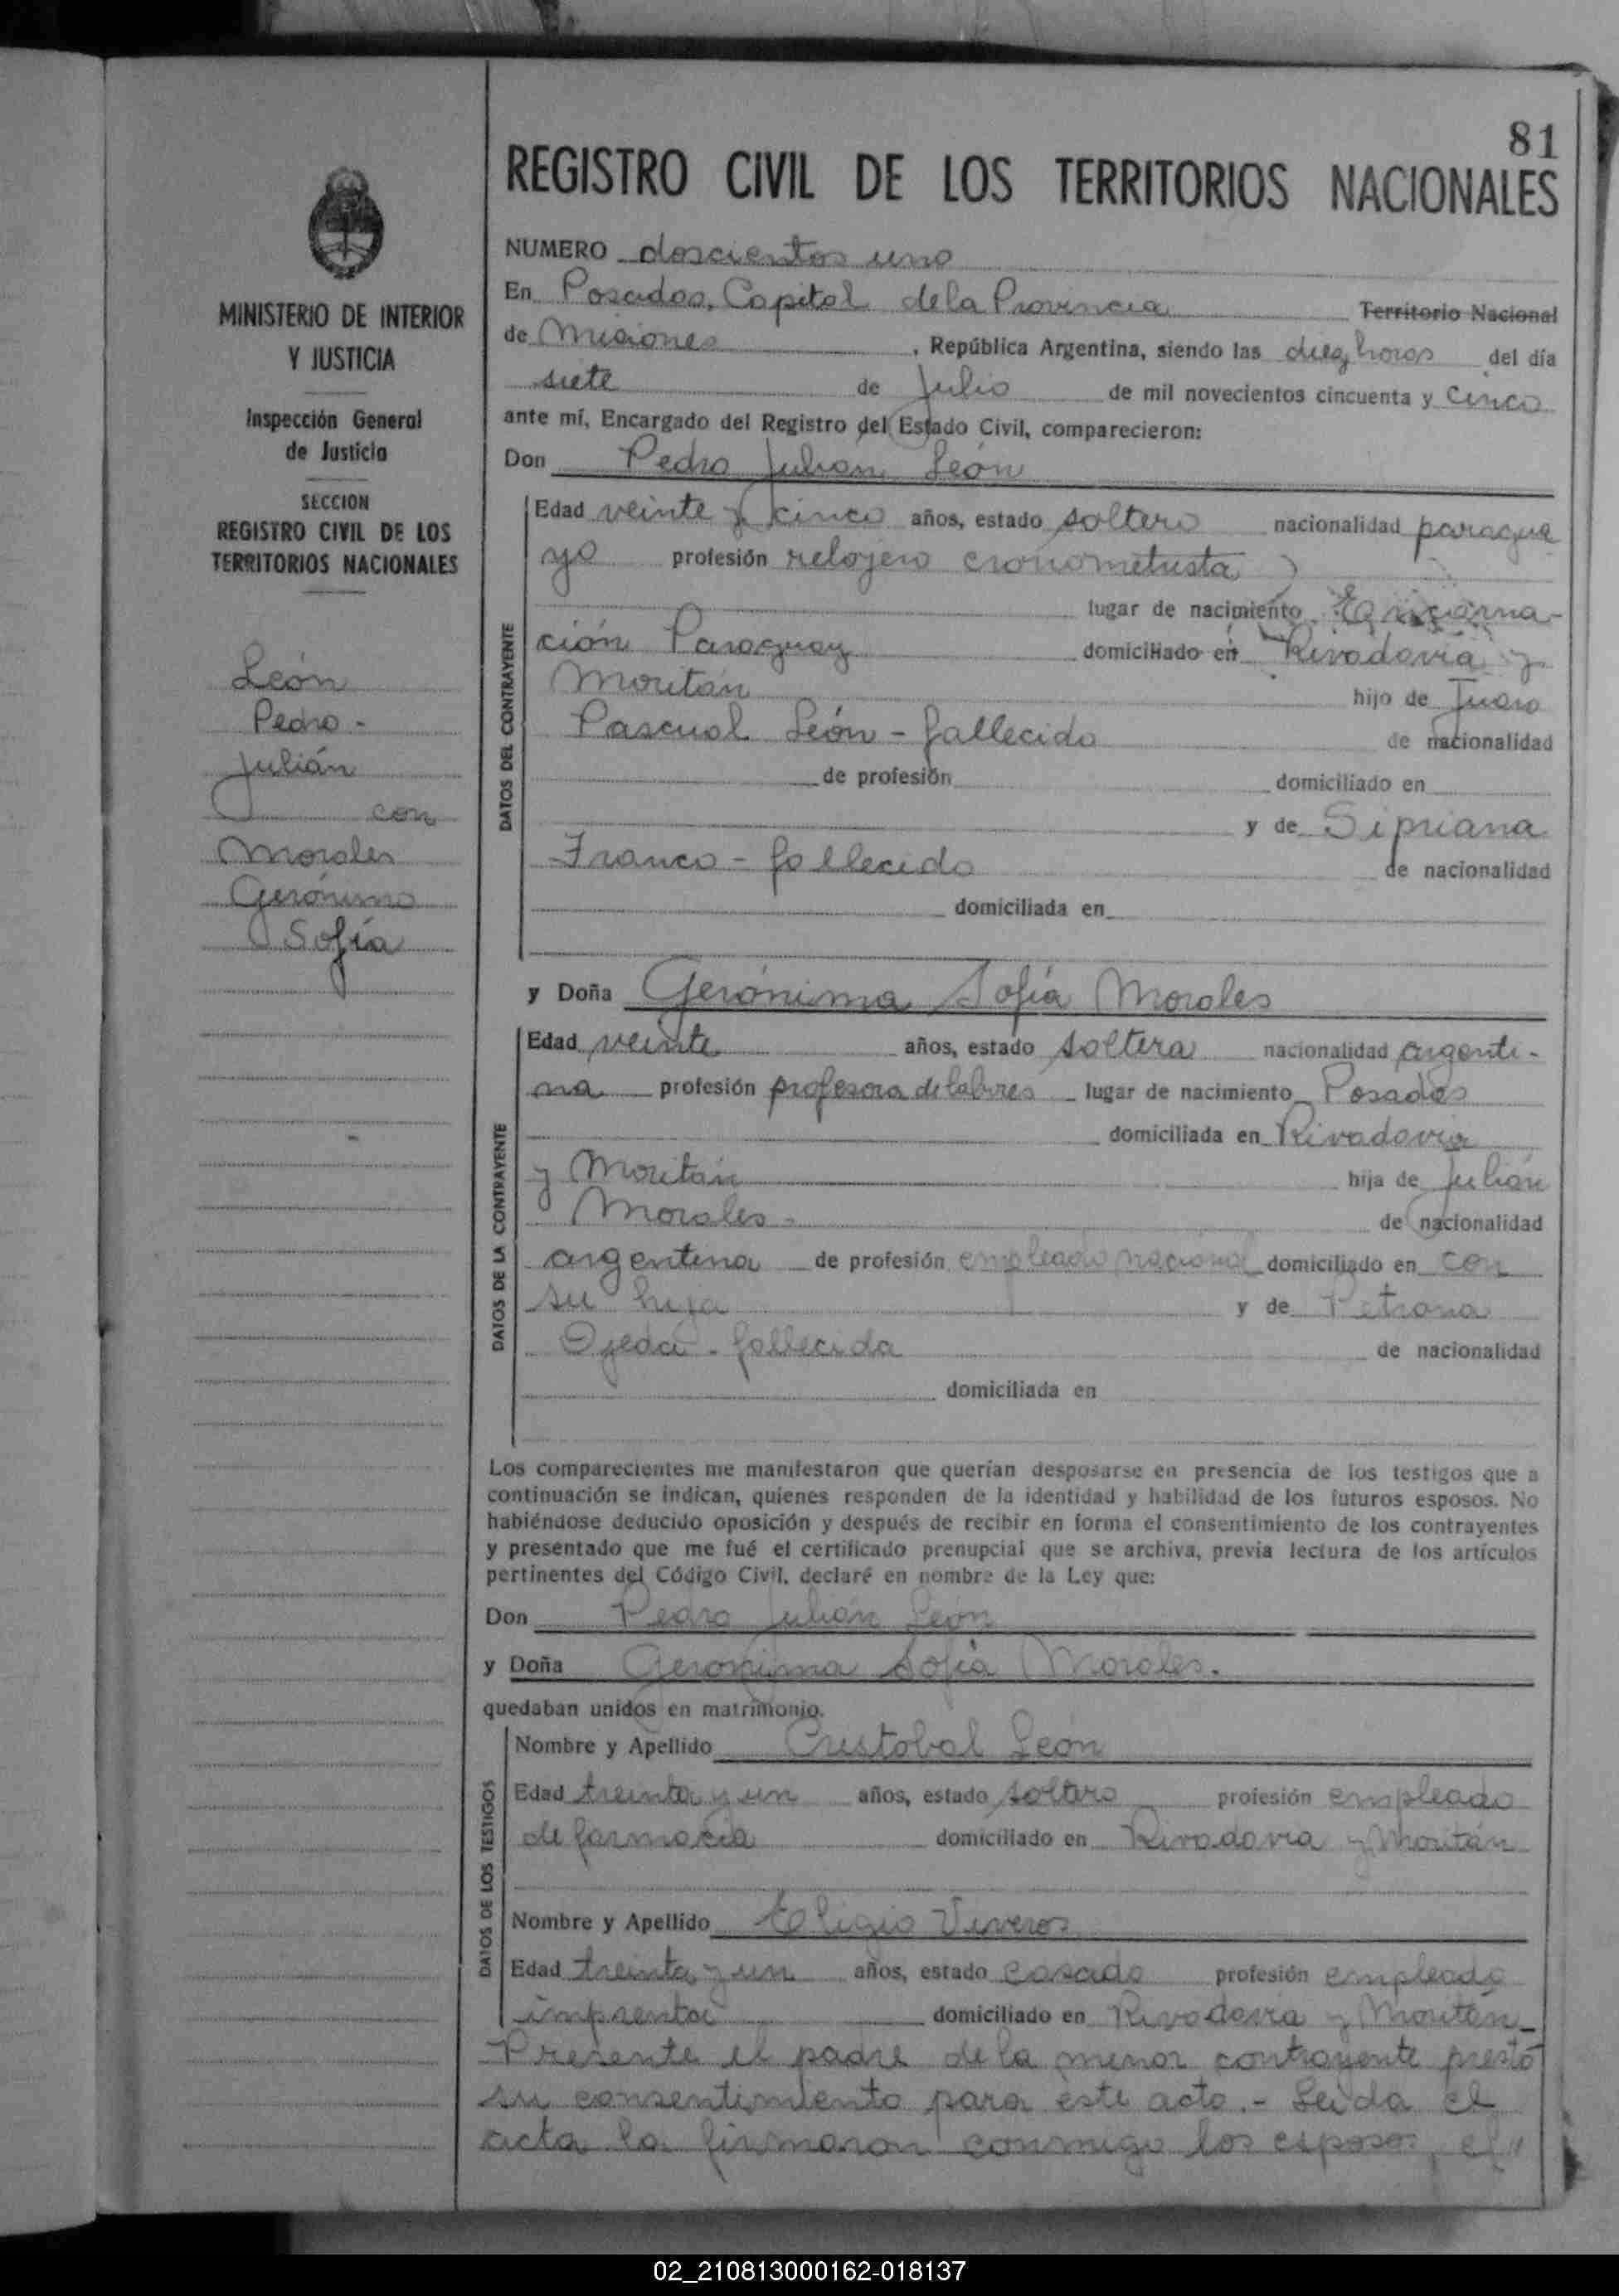 81
REGISTRO CIVIL DE LOS TERRITORIOS NACIONALES
MINISTERIO DE INTERIOR
Y JUSTICIA
Inspección General
de Justicia
SECCION
REGISTRO CIVIL DE LOS
TERRITORIOS NACIONALES
León
Pedro -
Julián
con
Morales
Gerónima
Sofía
NUMERO doscientos uno
En Posadas, Capital de la Provincia Territorio Nacional
de Misiones, República Argentina, siendo las diez horas del día
siete de Julio de mil novecientos cincuenta y cinco
ante mí, Encargado del Registro del Estado Civil, comparecieron:
Don Pedro Julian León
DATOS DEL CONTRAYENTE
Edad veinte y cinco años, estado soltero nacionalidad paragua
yo profesión relojero cronometrista
lugar de nacimiento Encarna-
ción Paraguay domiciliado en Rivadavia y
Moritán hijo de Juan
Pascual León - fallecido de nacionalidad
de profesión domiciliado en
y de Sipriana
Franco - fallecida de nacionalidad
domiciliada en
y Doña Gerónima Sofía Morales
DATOS DE LA CONTRAYENTE
Edad veinte años, estado soltera nacionalidad argenti-
na profesión profesora de labores lugar de nacimiento Posadas
domiciliada en Rivadavia
y Moritán hija de Julián
Morales - de nacionalidad
argentina de profesión empleado nacional domiciliado en con
su hija y de Petrona
Ojeda - fallecida de nacionalidad
domiciliada en
Los comparecientes me manifestaron que querían desposarse en presencia de los testigos que a
continuación se indican, quienes responden de la identidad y habilidad de los futuros esposos. No
habiéndose deducido oposición y después de recibir en forma el consentimiento de los contrayentes
y presentado que me fué el certificado prenupcial que se archiva, previa lectura de los artículos
pertinentes del Código Civil, declaré en nombre de la Ley que:
Don Pedro Julián León
y Doña Geronima Sofía Morales.
quedaban unidos en matrimonio.
DATOS DE LOS TESTIGOS
Nombre y Apellido Cristobal León
Edad treinta y un años, estado soltero profesión empleado
de farmacia domiciliado en Rivadavia y Moritán
Nombre y Apellido Eligio Viveros
Edad treinta y un años, estado casado profesión empleado
imprenta domiciliado en Rivadavia y Moritán -
Presente el padre de la menor contrayente prestó
su consentimiento para este acto. - Leída el
acta la firmaron conmigo los esposos, el"
02_210813000162-018137